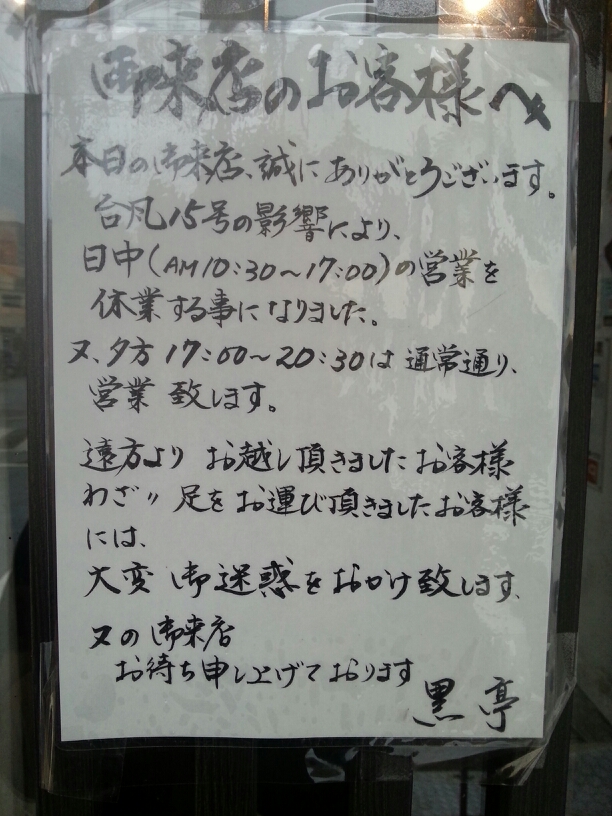 御来店のお客様へ
本日の御来店、誠にありがとうございます。
台風15号の影響により、
日中(AM10:30〜17:00)の営業を
休業する事になりました。
又、夕方17:00〜20:30は通常通り、
営業致します。
遠方よりお越し頂きましたお客様
わざ〃足をお運び頂きましたお客様
には、
大変御迷惑をおかけ致します、
又の御来店
お待ち申し上げております
黒亭